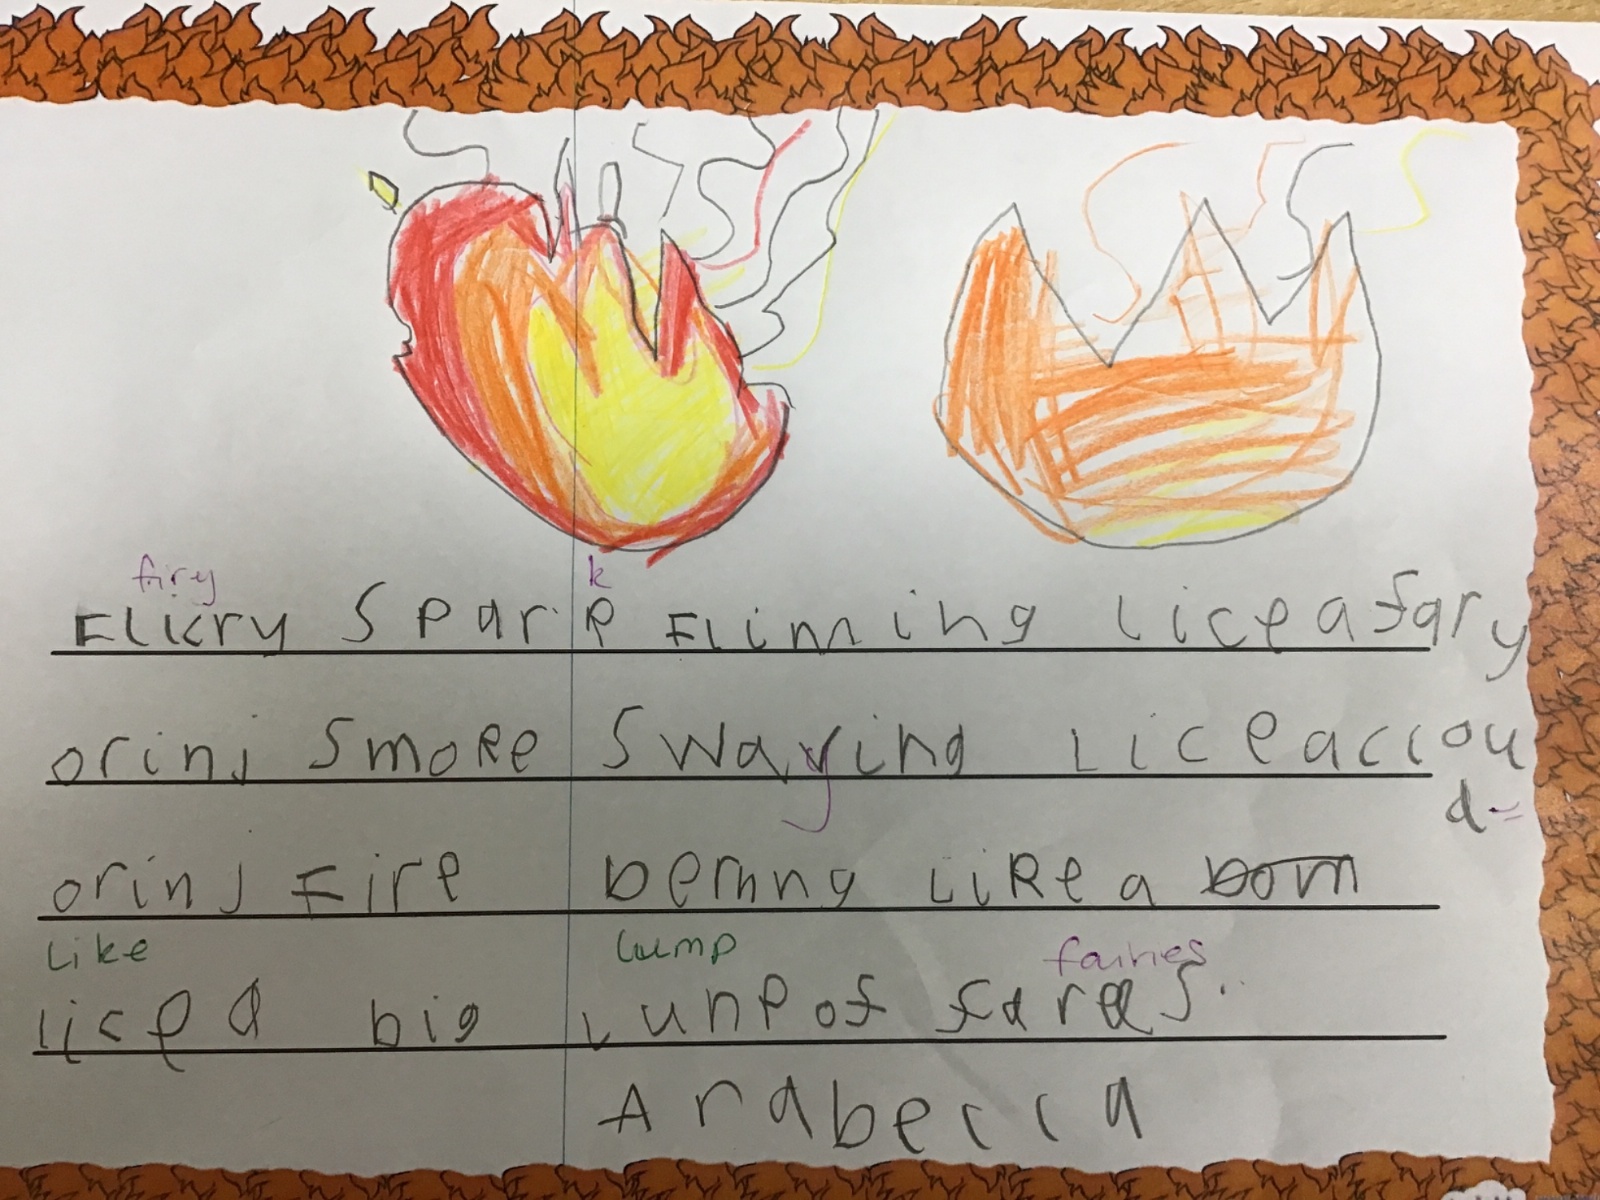 firy k
Flicry Spark Fliming lice a fary
orinj Smoke Swaying Lice a clou
d
orinj Fire berning like a bom
like lump fairies
lice a big lunp of farees.
Arabella